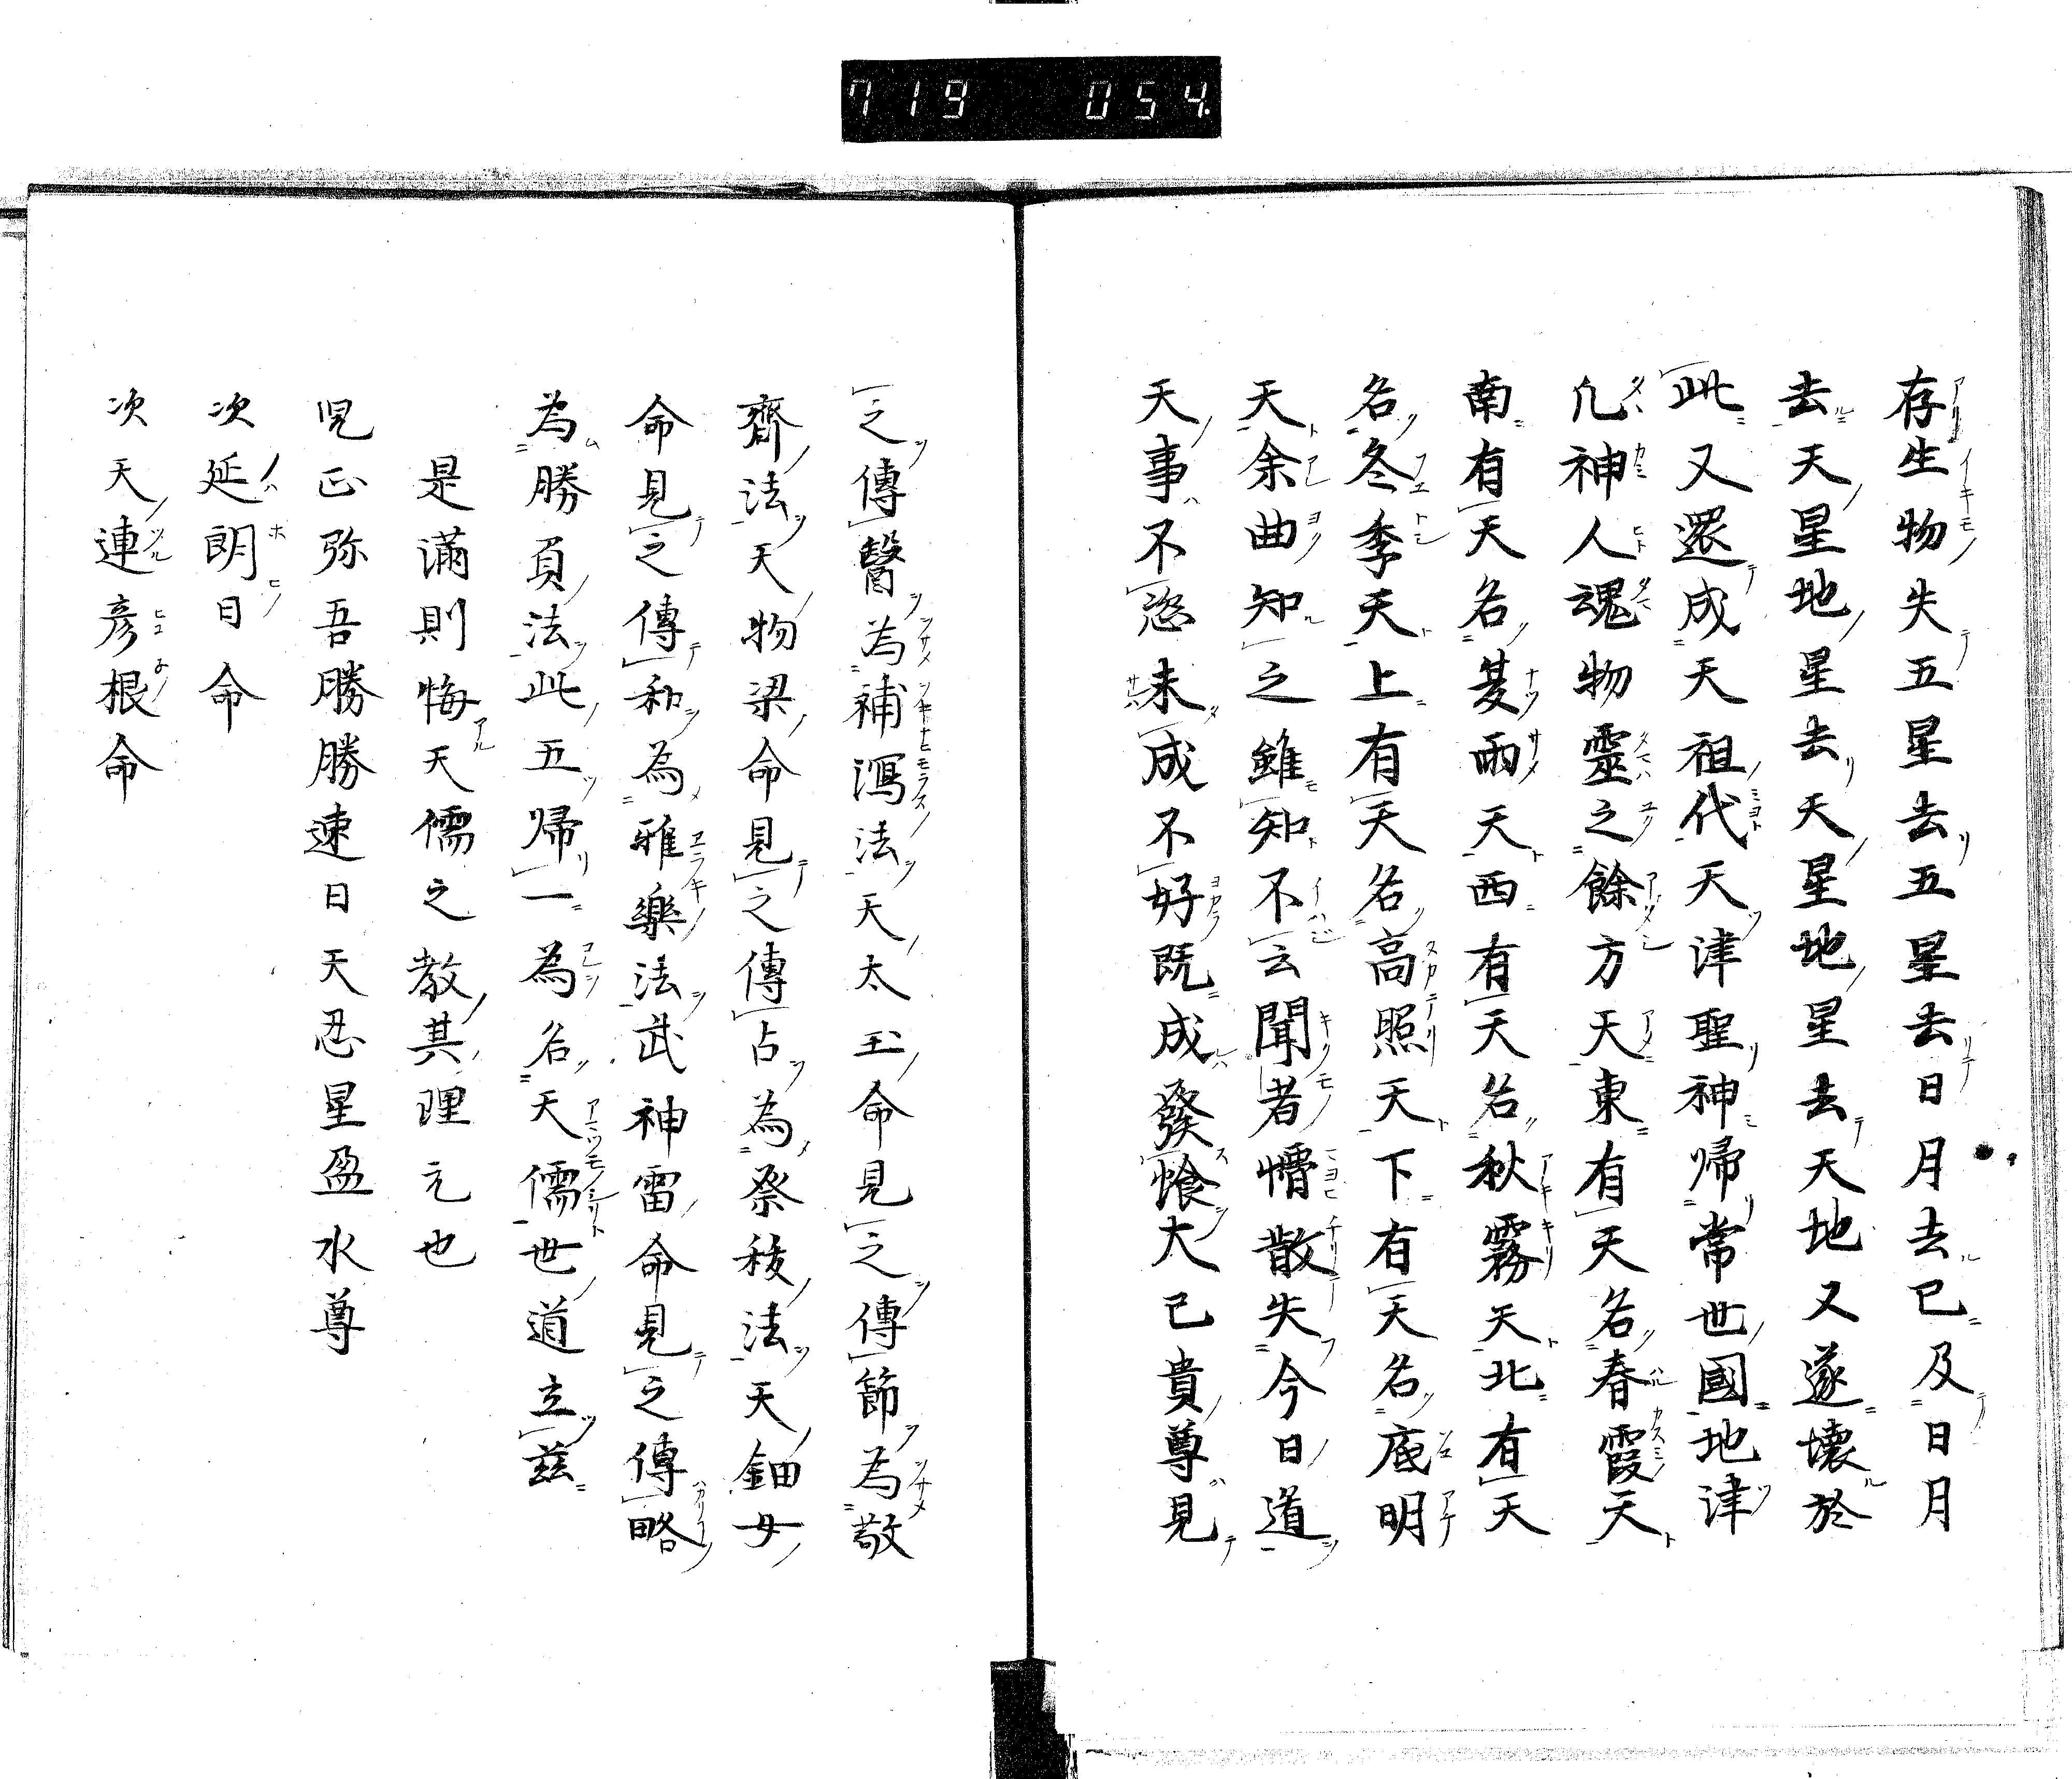 719 054.
存生物失五星去五星去日月去已及日月
去天星地星去天星地星去天地又遂壊於
此又還成天祖代天津聖神帰常世國地津
凢神人魂物靈之餘方天東有天名春霞天
南有天名夏雨天西有天名秋霧天北有天
名冬季天上有天名高照天下有天名底明
天余曲知之雖知不云聞者懵散失今日道
天事不恣未成不好既成發飱大己貴尊見
之傳醫為補瀉法天太玉命見之傳節為敬
齊法天物梁命見之傳占為祭秡法天鈿女
命見之傳和為雅樂法武神雷命見之傳略
為勝負法此五帰一為名天儒世道立茲
是滿則悔天儒之教其理元也
児正弥吾勝勝速日天忍星盈水尊
次延朗日命
次天連彦根命